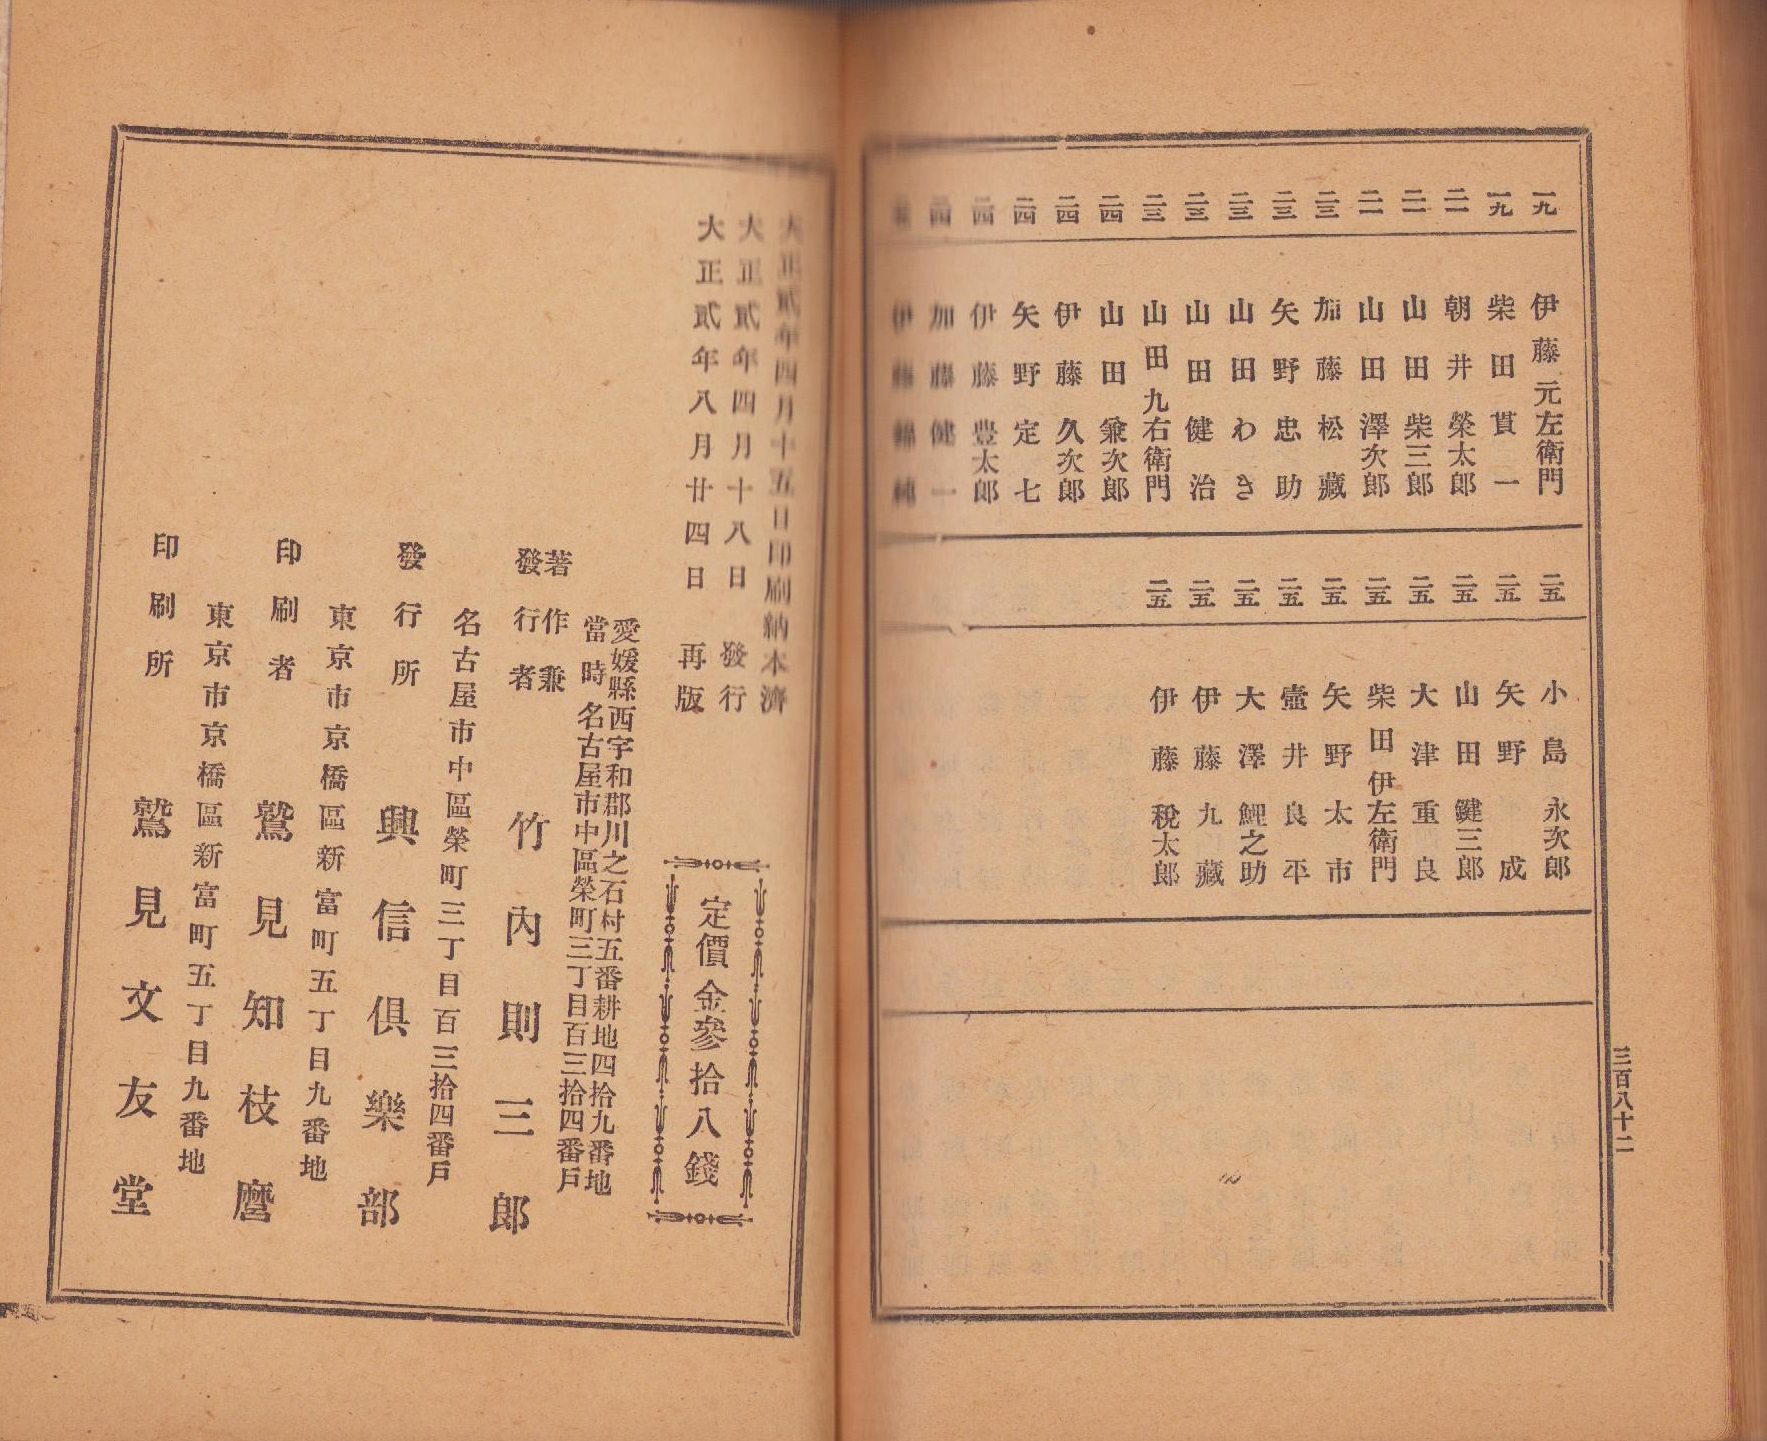 一九 伊藤元左衛門
一九 柴田貫一
二一 朝井榮太郎
二一 山田柴三郎
二一 山田澤次郎
二三 加藤松藏
二三 矢野忠助
二三 山田わき
二三 山田健治
二三 山田九右衛門
二四 山田兼次郎
二四 伊藤久次郎
二四 矢野定七
二四 伊藤豊太郎
二四 加藤健一
伊藤
二五 小島永次郎
二五 矢野成
二五 山田鍵三郎
二五 大津重良
二五 柴田伊左衛門
二五 矢野太市
二五 壷井良平
二五 大澤鯉之助
二五 伊藤九藏
二五 伊藤税太郎
三百八十二
大正貳年四月十五日印刷納本濟
大正貳年四月十八日發行
大正貳年八月廿四日再版
定價金參拾八錢
愛媛縣西宇和郡川之石村五番耕地四拾九番地
當時名古屋市中區榮町三丁目百三拾四番戸
著作兼
發行者 竹內則三郎
名古屋市中區榮町三丁目百三拾四番戸
發行所 興信俱樂部
東京市京橋區新富町五丁目九番地
印刷者 鷲見知枝麿
東京市京橋區新富町五丁目九番地
印刷所 鷲見文友堂